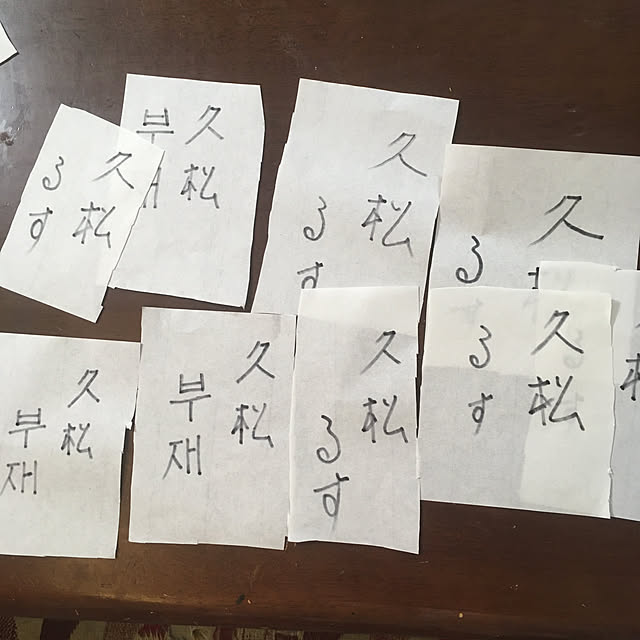 久松
るす
久松
부
久松
るす
久
る
久松
부재
久松
부재
久松
るす
久松
るす